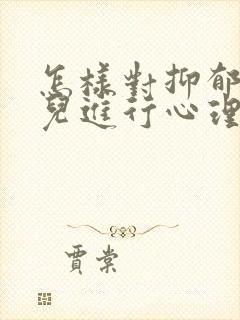 怎樣對抑郁
兒進行心理
賈棠